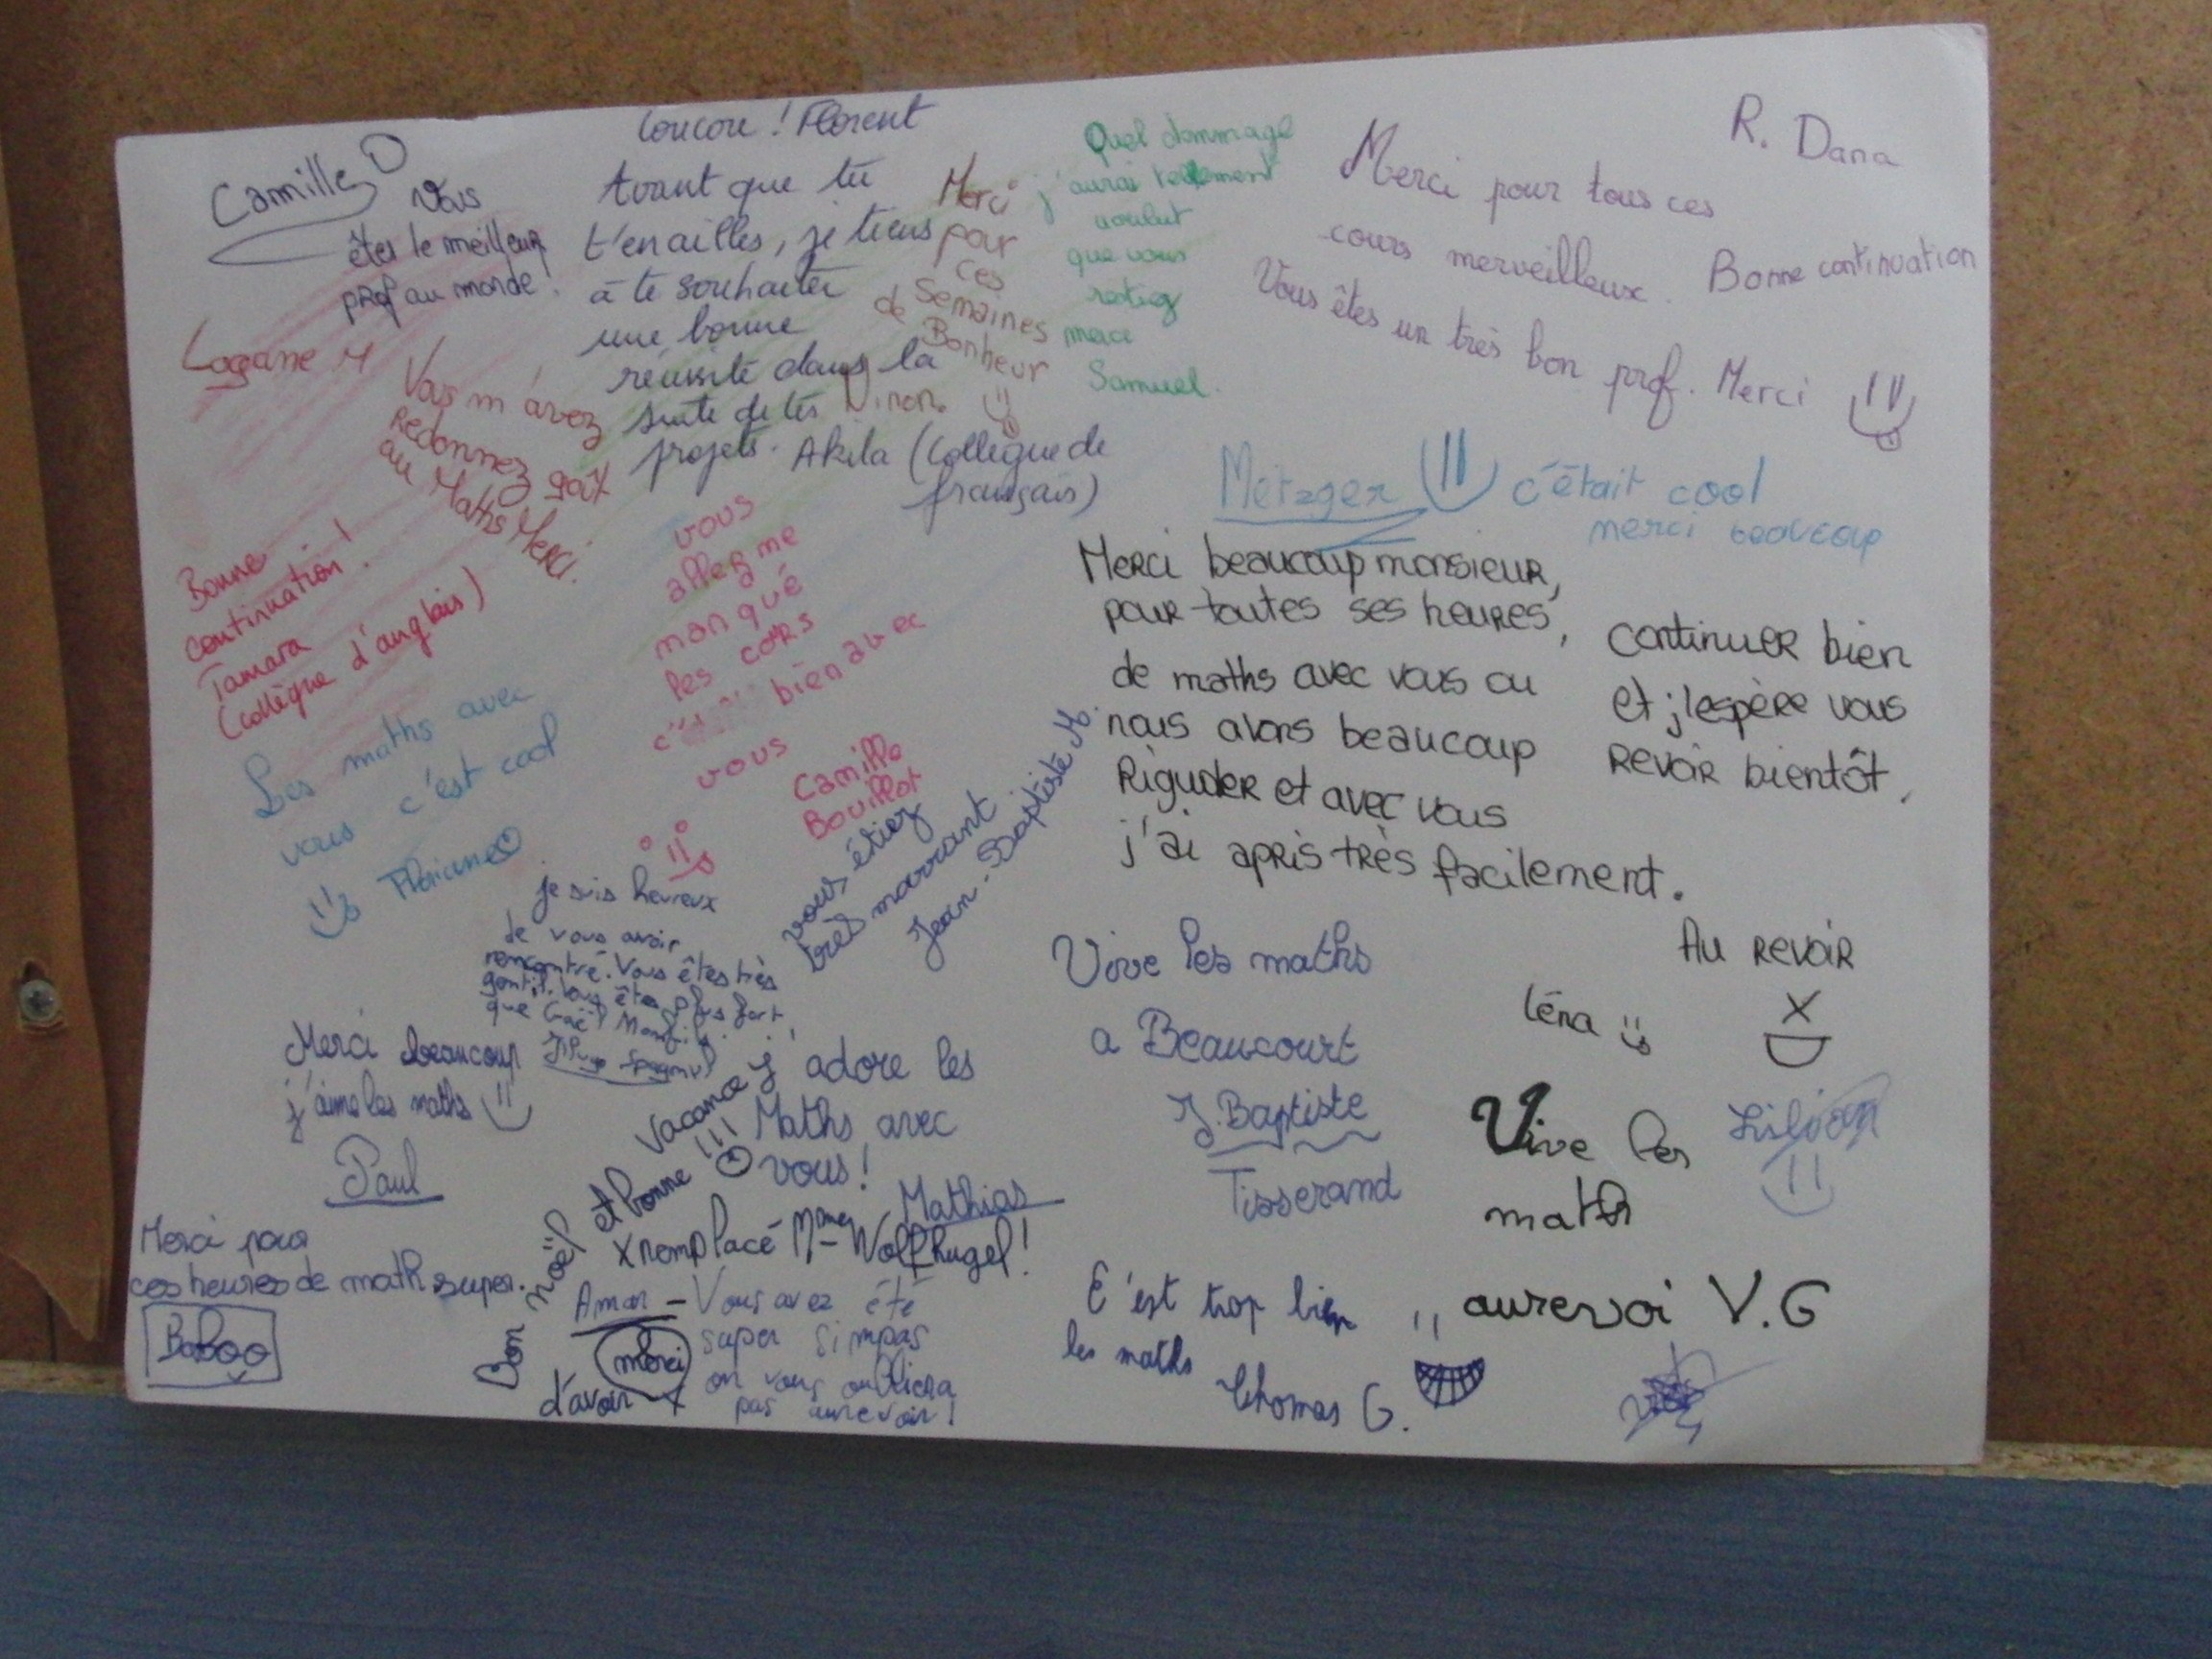 Camille D
Vous
êtes le meilleur
prof au monde!
Coucou ! Florent
Avant que tu
t'en ailles, je tiens
à te souhaiter
une bonne
réussite dans la
suite de tes
projets. Akila (Collègue de
français)
Merci
pour
ces
semaines
de Bonheur
Ninon.
Quel dommage
j'aurai tellement
voulut
que vous
restiez
merci
Samuel.
R. Dana
Merci pour tous ces
cours merveilleux. Bonne continuation
Vous êtes un très bon prof. Merci
Logane M
Vous m'avez
redonnez goût
au Maths Merci.
Bonne
continuation!
Tamara
(collègue d'anglais)
vous
allez me
manqué
les cours
bien avec
vous
Camille
Bouillot
Metzger c'était cool
merci beaucoup
Merci beaucoup monsieur,
pour toutes ses heures,
de maths avec vous ou
nous avons beaucoup
Riguoler et avec vous
j'ai apris très facilement.
continuer bien
et j'espère vous
revoir bientôt.
Au revoir
Léna
Les maths avec
vous c'est cool
Floriane
vous étiez
très marrant
Jean-Baptiste M.
je suis heureux
de vous avoir
rencontré. Vous êtes très
gentil. Vous êtes plus fort
que Gaël Monfils.
Hugo
Merci beaucoup
j'aime les maths
Paul
j'adore les
Maths avec
vous!
Mathias
Vive les maths
a Beaucourt
J. Baptiste
Tisserand
Vive les
maths
aurevoi V.G
Merci pour
ces heures de math super.
Baboo
Bon noël et bonne vacance !!!
Amar - Vous avez été
super simpas
on vous oubliera
pas aurevoir!
merci
d'avoir x
x remplacé Mme Wolfhugel!
C'est trop bien
les maths
Thomas G.